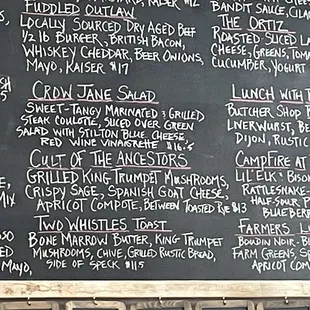 FUDDLED OUTLAW
LOCALLY SOURCED DRY AGED BEEF
1/2 lb BURGER, BRITISH BACON,
WHISKEY CHEDDAR, BEER ONIONS,
MAYO, KAISER $17
CROW JANE SALAD
SWEET-TANGY MARINATED & GRILLED
STEAK COULOTTE, SLICED OVER GREEN
SALAD WITH STILTON BLUE CHEESE
RED WINE VINAIGRETTE $16.5
CULT OF THE ANCESTORS
GRILLED KING TRUMPET MUSHROOMS,
CRISPY SAGE, SPANISH GOAT CHEESE,
APRICOT COMPOTE, BETWEEN TOASTED RYE $13
TWO WHISTLES TOAST
BONE MARROW BUTTER, KING TRUMPET
MUSHROOMS, CHIVE, GRILLED RUSTIC BREAD,
SIDE OF SPECK $11.5
MIX
MAYO,
BANDIT SAUCE
THE ORTIZ
ROASTED SLICED
CHEESE, GREENS,
CUCUMBER, YOGURT
LUNCH WITH
BUTCHER SHOP
LIVERWURST,
DIJON, RUSTIC
CAMPFIRE AT
LIL' ELK & BISON
RATTLESNAKE-
HALF-SOUR
BLUEBERRE
FARMERS
BOUDIN NOIR-
FARM GREENS,
APRICOT